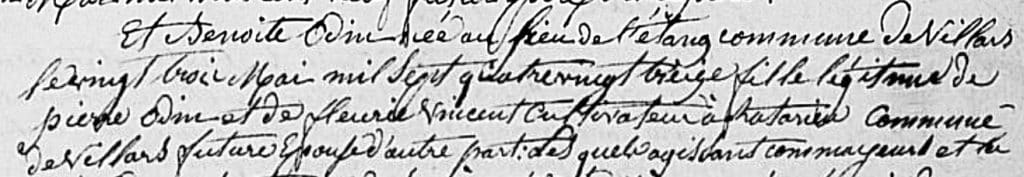 Et Benoite Odin née au lieu de l'étang commune de Villars
le vingt trois Mai mil sept quatrevingt treize fille légitime de
pierre Odin et de fleurie Vincent Cultivateur à commune
de Villars future Epouse d'autre part; Lesquels agissant comme majeurs et